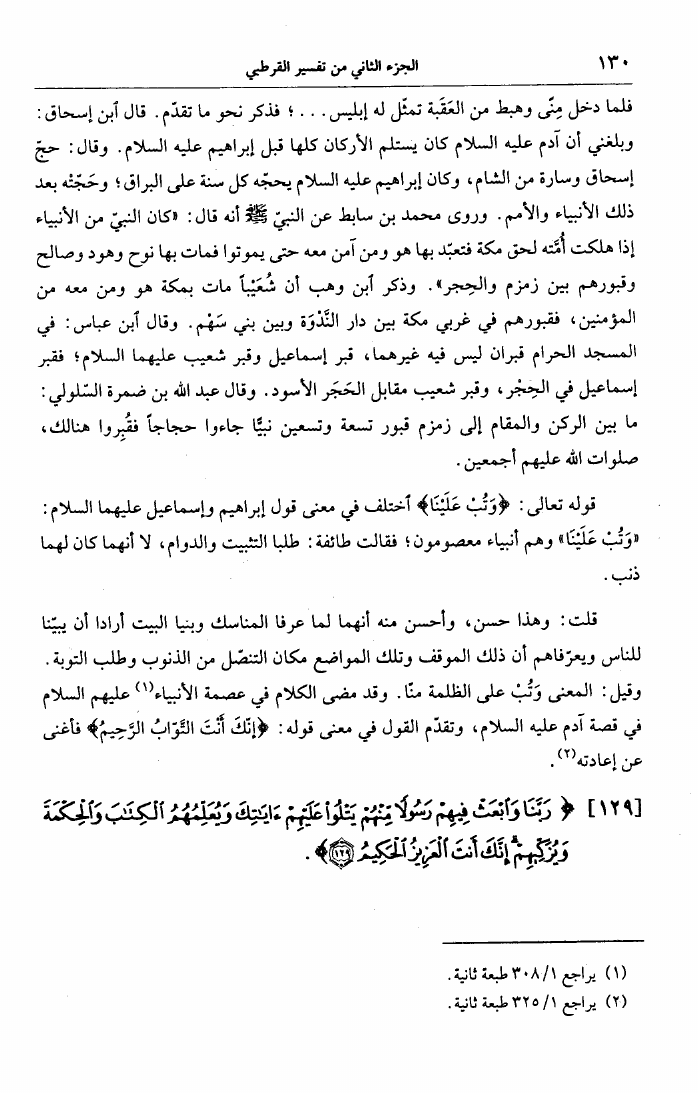 ١٣٠ الجزء الثاني من تفسير القرطبي
فلما دخل مِنًى وهبط من العَقَبة تمثّل له إبليس . . . ؛ فذكر نحو ما تقدّم. قال ٱبن إسحاق:
وبلغني أن آدم عليه السلام كان يستلم الأركان كلها قبل إبراهيم عليه السلام. وقال: حجّ
إسحاق وسارة من الشام، وكان إبراهيم عليه السلام يحجّه كل سنة على البراق؛ وحَجّتْه بعد
ذلك الأنبياء والأمم. وروى محمد بن سابط عن النبيّ ﷺ أنه قال: «كان النبيّ من الأنبياء
إذا هلكت أُمَّته لحق مكة فتعبّد بها هو ومن آمن معه حتى يموتوا فمات بها نوح وهود وصالح
وقبورهم بين زمزم والحِجر». وذكر ٱبن وهب أن شُعَيْباً مات بمكة هو ومن معه من
المؤمنين، فقبورهم في غربي مكة بين دار النَّدْوَة وبين بني سَهْم. وقال ٱبن عباس: في
المسجد الحرام قبران ليس فيه غيرهما، قبر إسماعيل وقبر شعيب عليهما السلام؛ فقبر
إسماعيل في الحِجْر، وقبر شعيب مقابل الحَجَر الأسود. وقال عبد الله بن ضمرة السّلولي:
ما بين الركن والمقام إلى زمزم قبور تسعة وتسعين نبيًّا جاءوا حجاجاً فقُبِروا هنالك،
صلوات الله عليهم أجمعين.
قوله تعالى: ﴿وَتُبْ عَلَيْنَا﴾ ٱختلف في معنى قول إبراهيم وإسماعيل عليهما السلام:
«وَتُبْ عَلَيْنَا» وهم أنبياء معصومون؛ فقالت طائفة: طلبا التثبيت والدوام، لا أنهما كان لهما
ذنب.
قلت: وهذا حسن، وأحسن منه أنهما لما عرفا المناسك وبنيا البيت أرادا أن يبيّنا
للناس ويعرّفاهم أن ذلك الموقف وتلك المواضع مكان التنصّل من الذنوب وطلب التوبة.
وقيل: المعنى وَتُبْ على الظلمة منّا. وقد مضى الكلام في عصمة الأنبياء(١) عليهم السلام
في قصة آدم عليه السلام، وتقدّم القول في معنى قوله: ﴿إِنَّكَ أَنْتَ التَّوَّابُ الرَّحِيمُ﴾ فأغنى
عن إعادته(٢).
[١٢٩] ﴿ رَبَّنَا وَٱبْعَثْ فِيهِمْ رَسُولًا مِّنْهُمْ يَتْلُوا۟ عَلَيْهِمْ ءَايَـٰتِكَ وَيُعَلِّمُهُمُ ٱلْكِتَـٰبَ وَٱلْحِكْمَةَ
وَيُزَكِّيهِمْ ۚ إِنَّكَ أَنتَ ٱلْعَزِيزُ ٱلْحَكِيمُ ١٢٩﴾.
(١) يراجع ٣٠٨/١ طبعة ثانية.
(٢) يراجع ٣٢٥/١ طبعة ثانية.